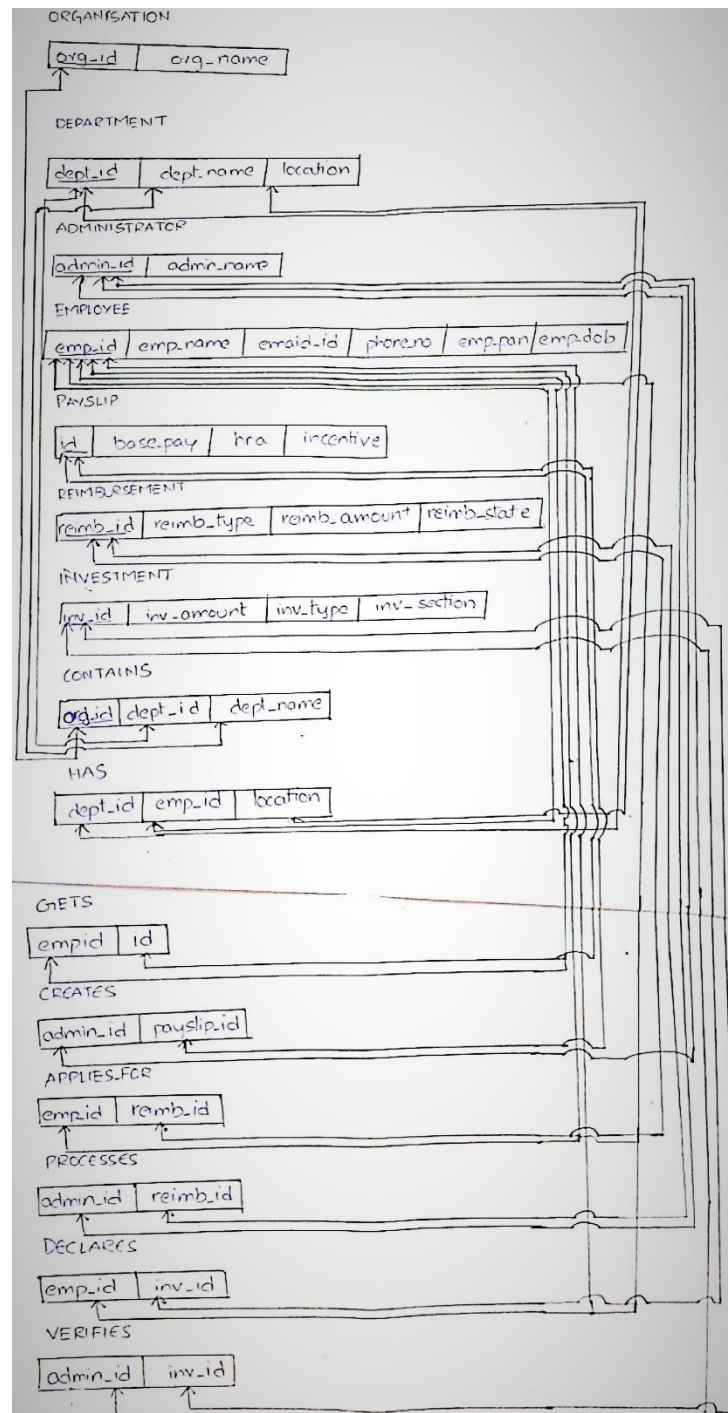 ORGANISATION
org_id org_name
DEPARTMENT
dept_id dept_name location
ADMINISTRATOR
admin_id admin_name
EMPLOYEE
emp_id emp_name emaid_id phone.no emp.pan emp.dob
PAYSLIP
id base.pay hra incentive
REIMBURSEMENT
reimb_id reimb_type reimb_amount reimb_state
INVESTMENT
inv_id inv_amount inv_type inv_section
CONTAINS
org_id dept_id dept_name
HAS
dept_id emp_id location
GETS
empid id
CREATES
admin_id payslip_id
APPLIES_FOR
emp_id reimb_id
PROCESSES
admin_id reimb_id
DECLARES
emp_id inv_id
VERIFIES
admin_id inv_id